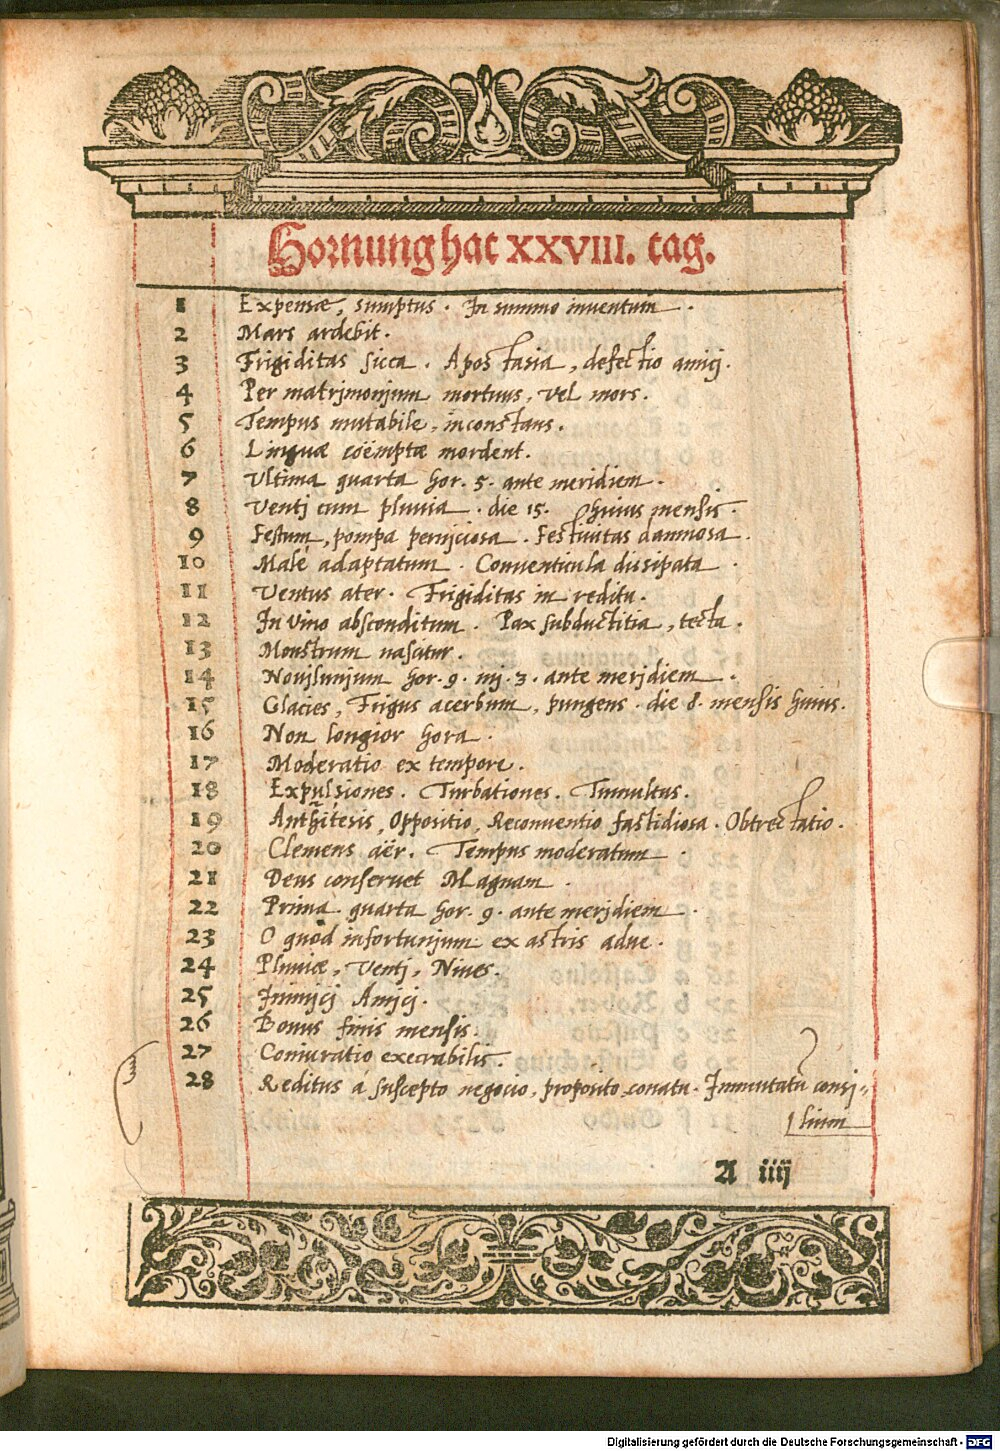 Hornung hat XXVIII. tag.
1 Expensæ, sumptus. In summo inventum.
2 Mars ardebit.
3 Frigiditas sicca. Apostasia, defectio amicj.
4 Per matrjmonjum mortuus, vel mors.
5 Tempus mutabile, inconstans.
6 Linguæ coëmptæ mordent.
7 Ultima quarta hor. 5. ante meridiem.
8 Ventj cum pluvia. die 15. huius mensis.
9 Festum, pompa pernjciosa. Festiuitas damnosa.
10 Malè adaptatum. Conventicula dissipata.
11 Ventus ater. Frigiditas in reditu.
12 In vino absconditum. Pax subductitia, tecta.
13 Monstrum nascitur.
14 Novjlunjum hor. 9. mj. 3. ante merjdiem.
15 Glacies, Frigus acerbum, pungens. die 8. mensis huius.
16 Non longior hora.
17 Moderatio ex tempore.
18 Expulsiones. Turbationes. Tumultus.
19 Antithesis, Oppositio, Reconventio fastidiosa. Obtrectatio.
20 Clemens aër. Tempus moderatum.
21 Deus conservet Magnam.
22 Prima quarta hor. 9. ante merjdiem.
23 O quod infortunjum ex astris adue.
24 Pluviæ, Ventj, Nives.
25 Inimjcj Amjcj.
26 Bonus finis mensis.
27 Coniuratio execrabilis.
28 Reditus á suscepto negocio, proposito, conatu. Immutatū consi=
lium
A iiij
Digitalisierung gefördert durch die Deutsche Forschungsgemeinschaft - DFG